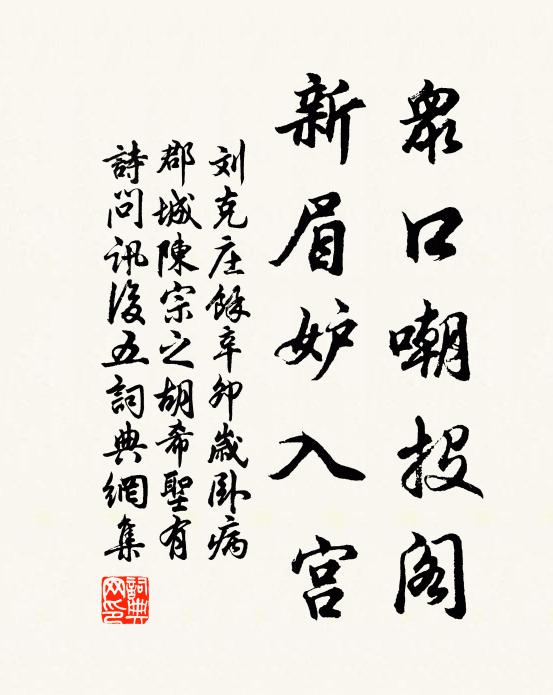 眾口嘲投閣
新眉妒入宮
刘克庄餘辛卯歲卧病
郡城陳宗之胡希聖有
詩問訊後五詞典網集
詞典網印